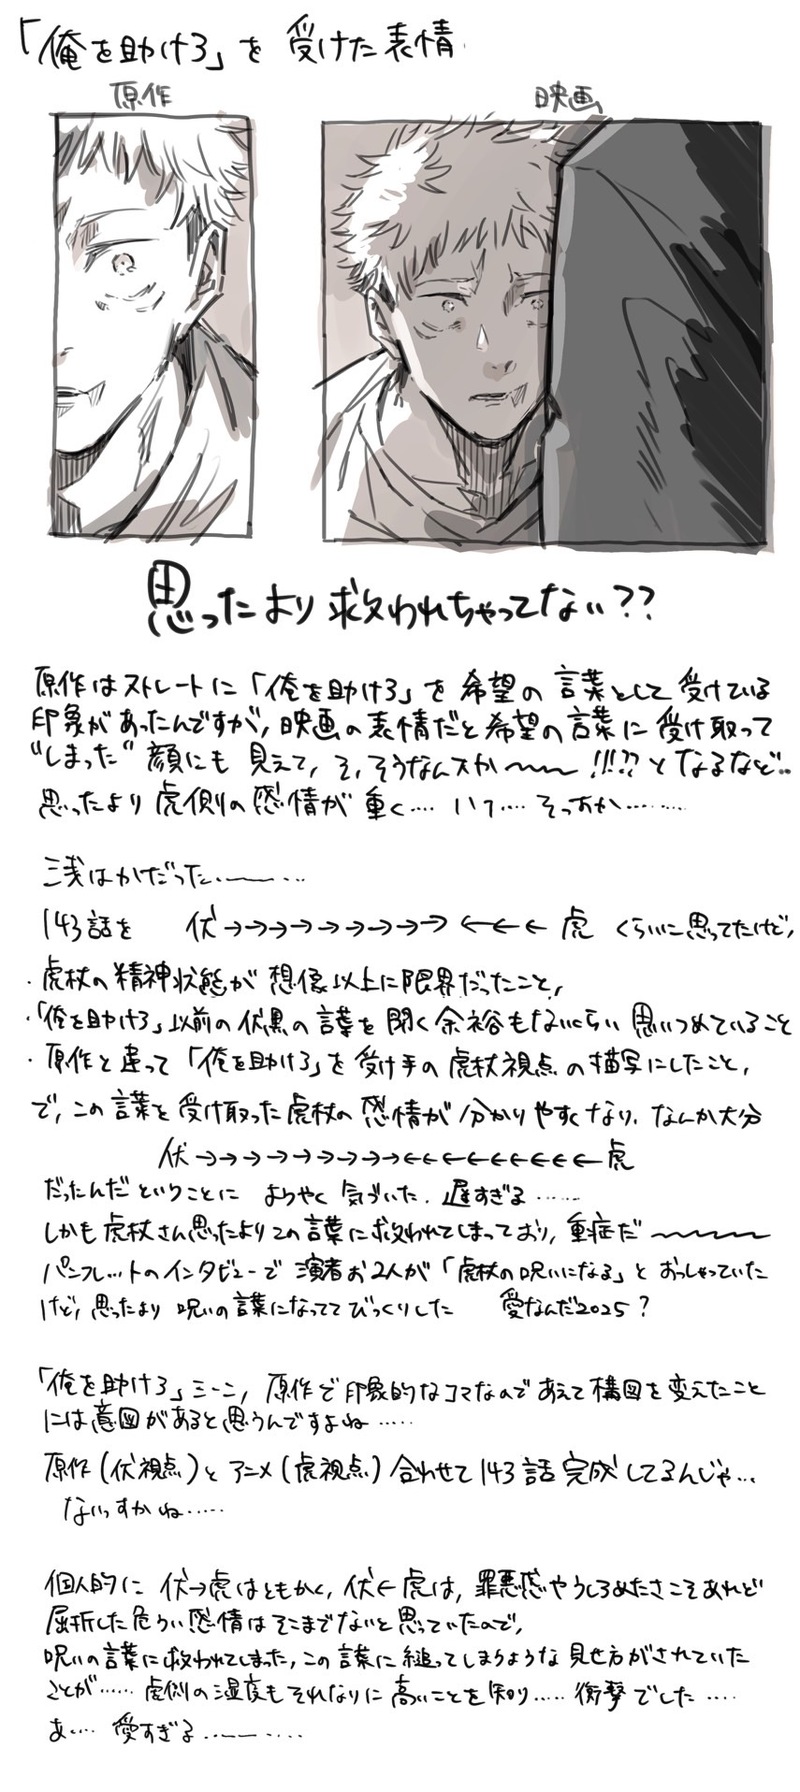 「俺を助けろ」を 受けた表情
原作
映画
思ったより救われちゃってない??
原作はストレートに「俺を助けろ」を希望の言葉として受けている
印象があったんですが、映画の表情だと希望の言葉に受け取って
"しまった"顔にも見えて、そ、そうなんスか〜〜!!!??となるなど..
思ったより虎側の感情が重く…. いて…. そっすか………
浅はかだった.――...
143話を 伏→→→→→→→→→ ←←← 虎 くらいに思ってたけど、
・虎杖の精神状態が想像以上に限界だったこと、
・「俺を助けろ」以前の伏黒の言葉を聞く余裕もないくらい思いつめていること
・原作と違って「俺を助けろ」を受け手の虎杖視点の描写にしたこと、
で、この言葉を受け取った虎杖の感情が分かりやすくなり、なんか大分
伏→→→→→→→→→←←←←←←←←←虎
だったんだということに ようやく気づいた. 遅すぎる……
しかも虎杖さん思ったよりこの言葉に救われてしまっており、重症だ〜〜〜
パンフレットのインタビューで演者お2人が「虎杖の呪いになる」とおっしゃっていた
けど、思ったより呪いの言葉になっててびっくりした 愛なんだ2025?
「俺を助けろ」シーン、原作で印象的なコマなのであえて構図を変えたこと
には意図があると思うんですよね…..
原作(伏視点)とアニメ(虎視点)合わせて143話完成してるんじゃ…
ないっすかね…..
個人的に 伏→虎はともかく、伏←虎は、罪悪感やうしろめたさこそあれど
屈折した危うい感情はそこまでないと思っていたので、
呪いの言葉に救われてしまった、この言葉に縋ってしまうような見せ方がされていた
ことが…… 虎側の湿度もそれなりに高いことを知り….. 衝撃でした ….
あ…. 愛すぎる ..――....